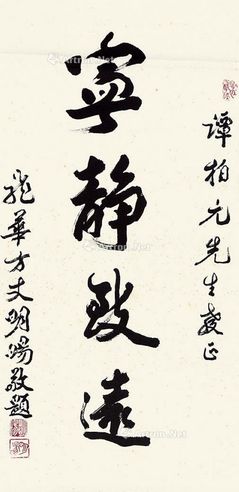 譚柏元先生教正
寧靜致遠
龍華方丈明暘敬題